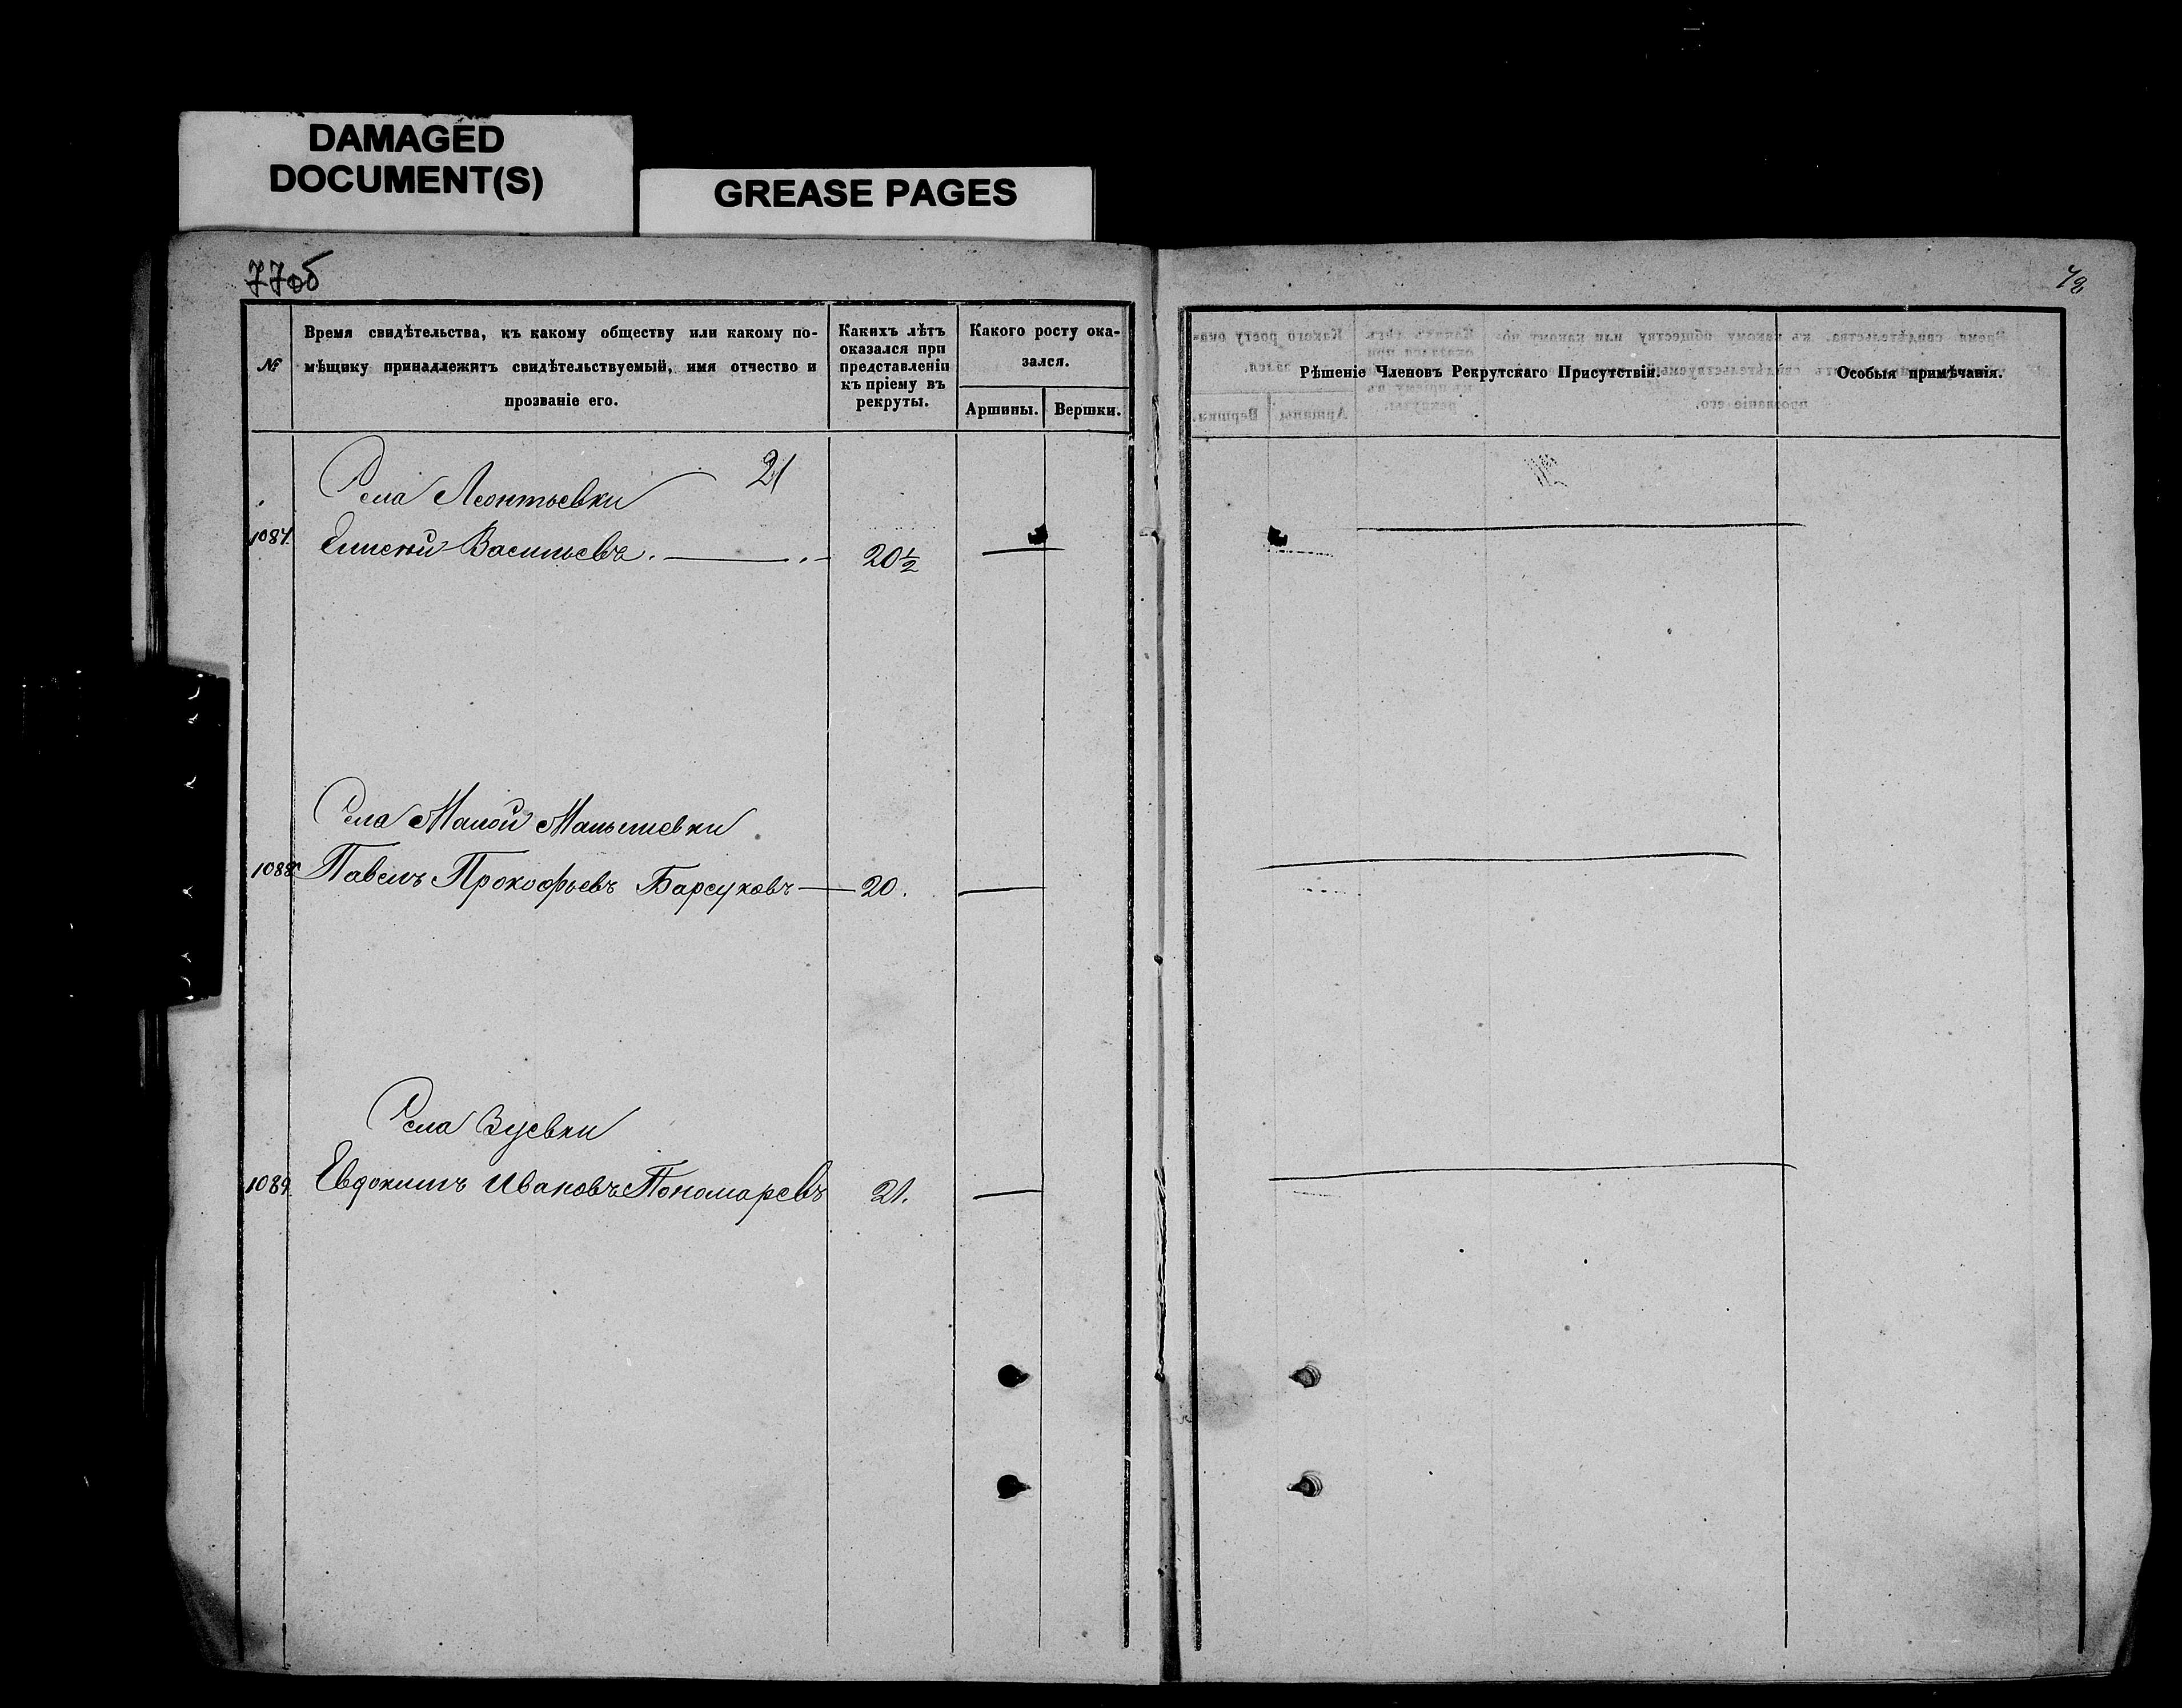 DAMAGED
DOCUMENT(S)
GREASE PAGES
77об
№
Время свидѣтельства, къ какому обществу или какому по-
мѣщику принадлежитъ свидѣтельствуемый, имя отчество и
прозваніе его.
Какихъ лѣтъ
оказался при
представленіи
къ пріему въ
рекруты.
Какого росту ока-
зался.
Аршины.
Вершки.
21
Села Леонтьевки
1087. Елисей Васильевъ. 20½
Села Малой Малышевки
1088. Павелъ Прокофьевъ Барсуковъ 20.
Села Зуевки
1089. Евдокимъ Ивановъ Пономаревъ 21.
Рѣшеніе Членовъ Рекрутскаго Присутствія.
Особыя примѣчанія.